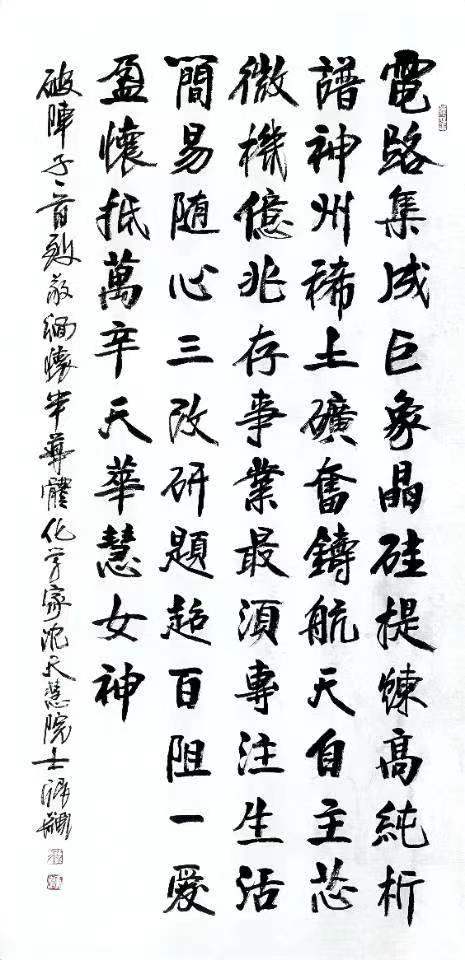 電路集成巨象晶硅提鍊高純析
譜神州稀土礦奮鑄航天自主芯
微機億兆存事業最須專注生活
簡易随心三改研題超百阻一愛
盈懷抵萬辛天華慧女神
破陣子一首致敬緬懷半導體化学家沈天慧院士